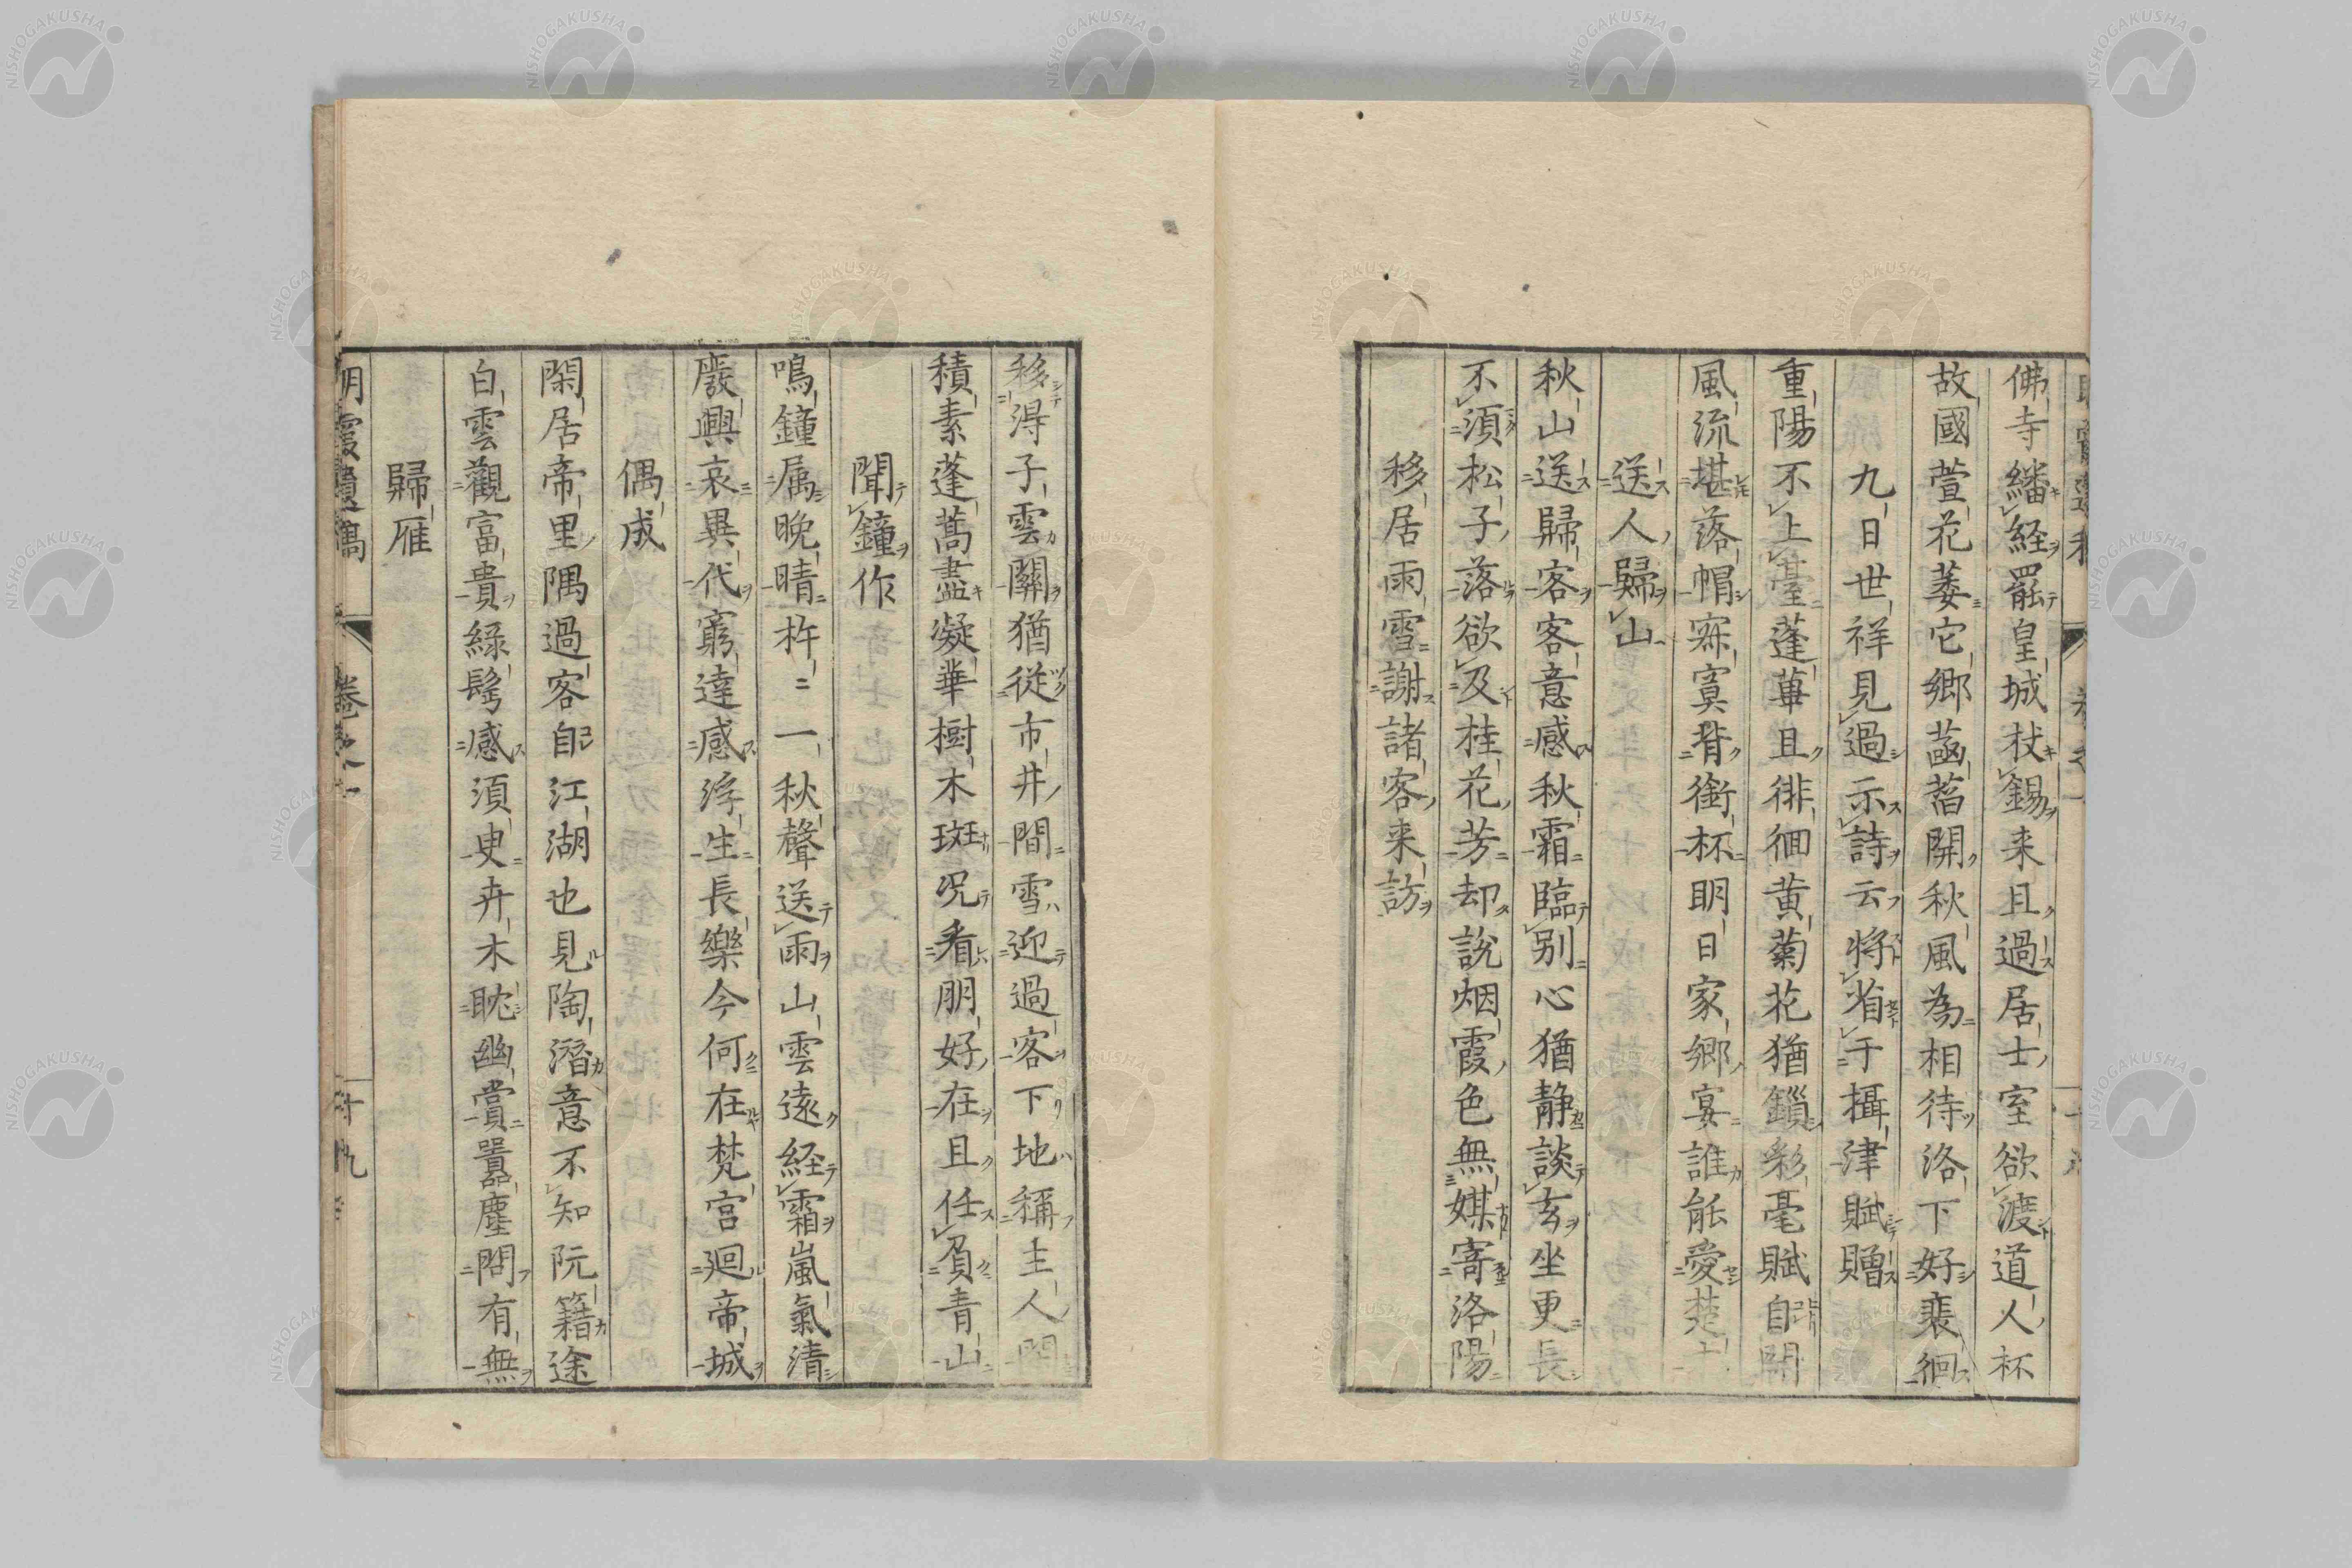 佛寺繙経罷皇城杖錫来且過居士室欲渡道人杯
故國萱花萎它郷菡萏開秋風為相待洛下好裴徊
九日世祥見過示詩云将省于攝津賦贈
重陽不上臺蓬蓽且徘徊黄菊花猶鎖彩毫賦自開
風流堪落帽寂寞背銜杯明日家郷宴誰能愛楚
送人歸山
秋山送歸客客意感秋霜臨別心猶静談玄坐更長
不須松子落欲及桂花芳却説烟霞色無媒寄洛陽
移居雨雪謝諸客来訪
移得子雲關猶従市井間雪迎過客下地稱主人閒
積素蓬蒿盡凝華樹木斑况看朋好在且任負青山
聞鐘作
鳴鐘属晩晴杵二一秋聲送雨山雲遠経霜嵐氣清
廢興哀異代窮達感浮生長樂今何在梵宮廻帝城
偶成
閑居帝里隅過客自江湖也見陶潛意不知阮籍途
白雲觀富貴緑髩感須臾卉木耽幽賞囂塵問有無
歸雁
明霞遺稿 卷之一 十九
NISHOGAKUSHA